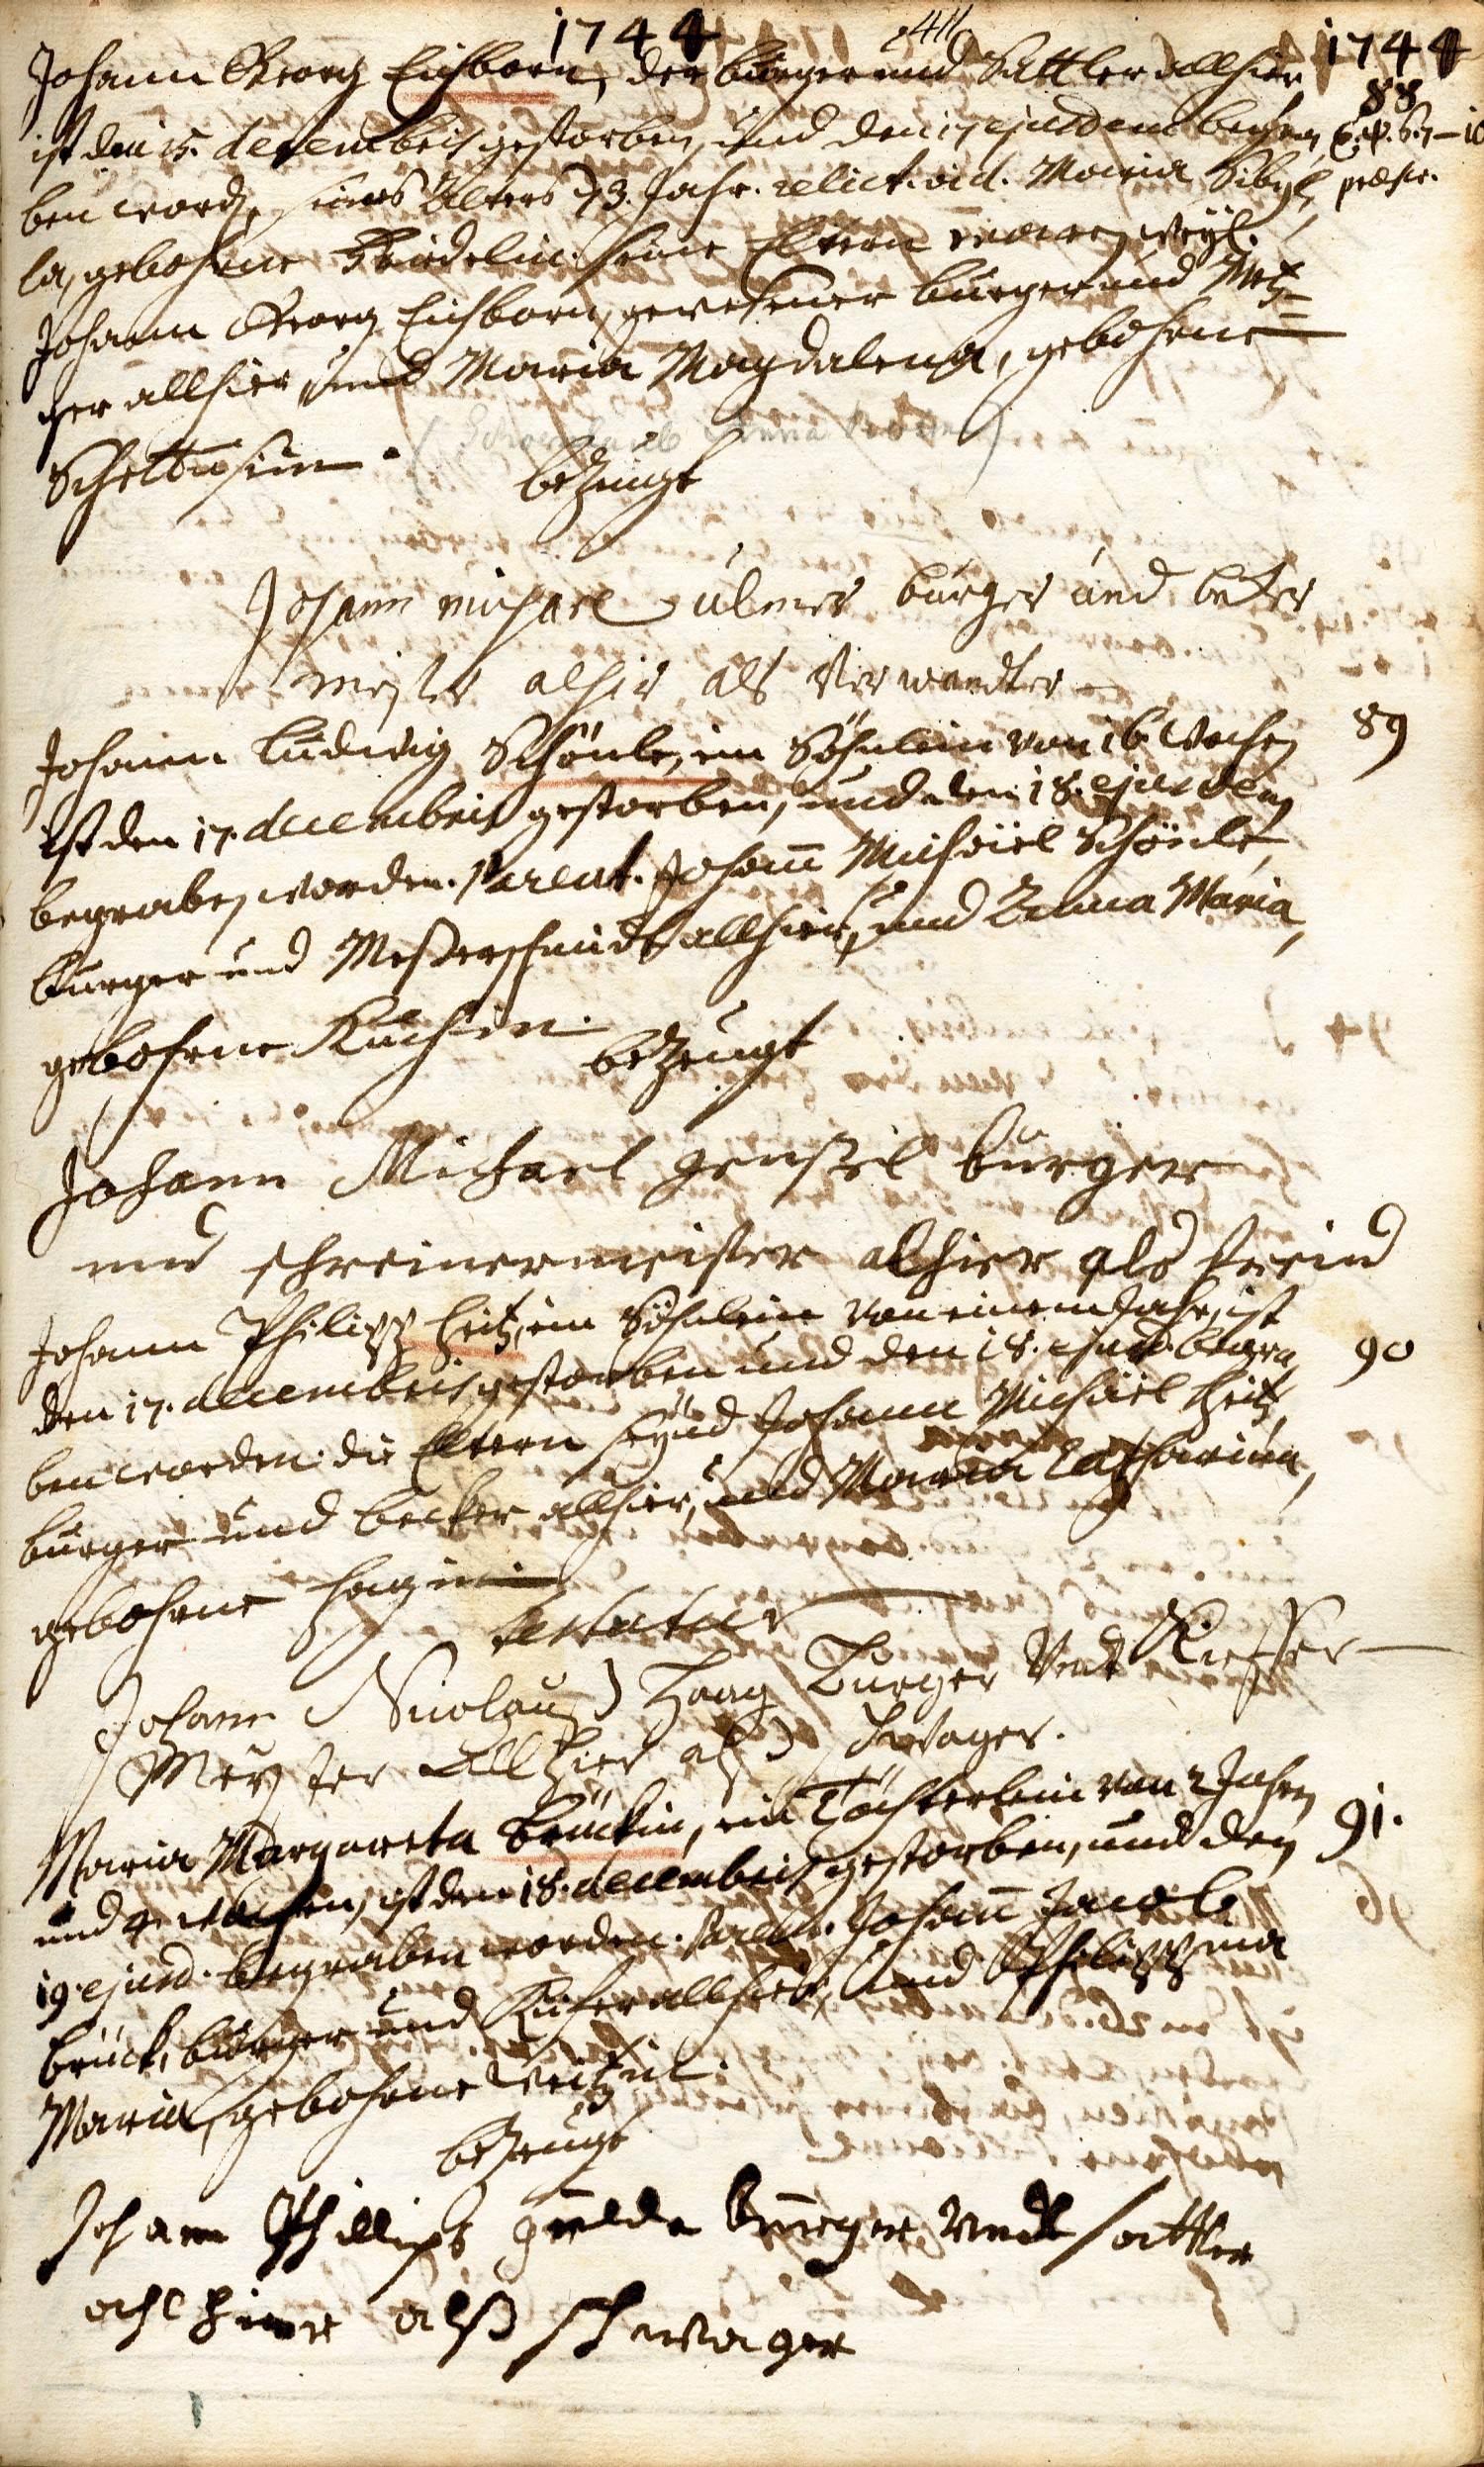 1744 411 1744
Johann Georg Eichborn, der burger und Sattler allhier 88
ist den 15. decembris gestorben, und den 17 ejusdem begra,
ben word, seines Alters 73. Jahr. relict. vid. Maria Sibyl,
la, gebohrne Friedelin. seine Eltern waren weyl.
Johann Georg Eichborn, gewesener burger und Metz=
ger allhier, und Maria Magdalena, gebohrne
bezeügt
Johann michael ulmer burger und becker
meister alhir als Verwandter
Johann Ludwig Schönle, ein Söhnlein von 16 Wochen 89
ist den 17. decembris gestorben, und den 18. ejusdem
begraben worden. Parent. Johann Michäel Schönle,
burger und Messerschmidt allhier, und Anna Maria,
gebohrne Küchin.
bezeügt
Johann Michael gensel burger
und schreinermeister alhier als freind
Johann Philipp Heitz, ein Söhnlein von einem Jahr, ist
den 17. decembris gestorben und den 18. ejusd. begra, 90
ben worden. die Eltern seynd Johann Michäel Heitz,
burger und becker allhier, und Maria Catharina,
gebohrne Hagin.
testatur
Johann Nicolaus Haag Burger Undt Kieffer
Meyster Allhier alß Schwager.
Maria Margareta Brückin, ein Töchterlein von 2 Jahren 91.
und 4. wochen, ist den 18. decembris gestorben, und den
19. ejusd. begraben worden. Parent. Johann Jacob
Brück, burger und Kiefer allhier, und Philippina
Maria, gebohrne Weitzin.
bezeugt
Johann Phillips gulde burger undt sattler
alhier alß schwager